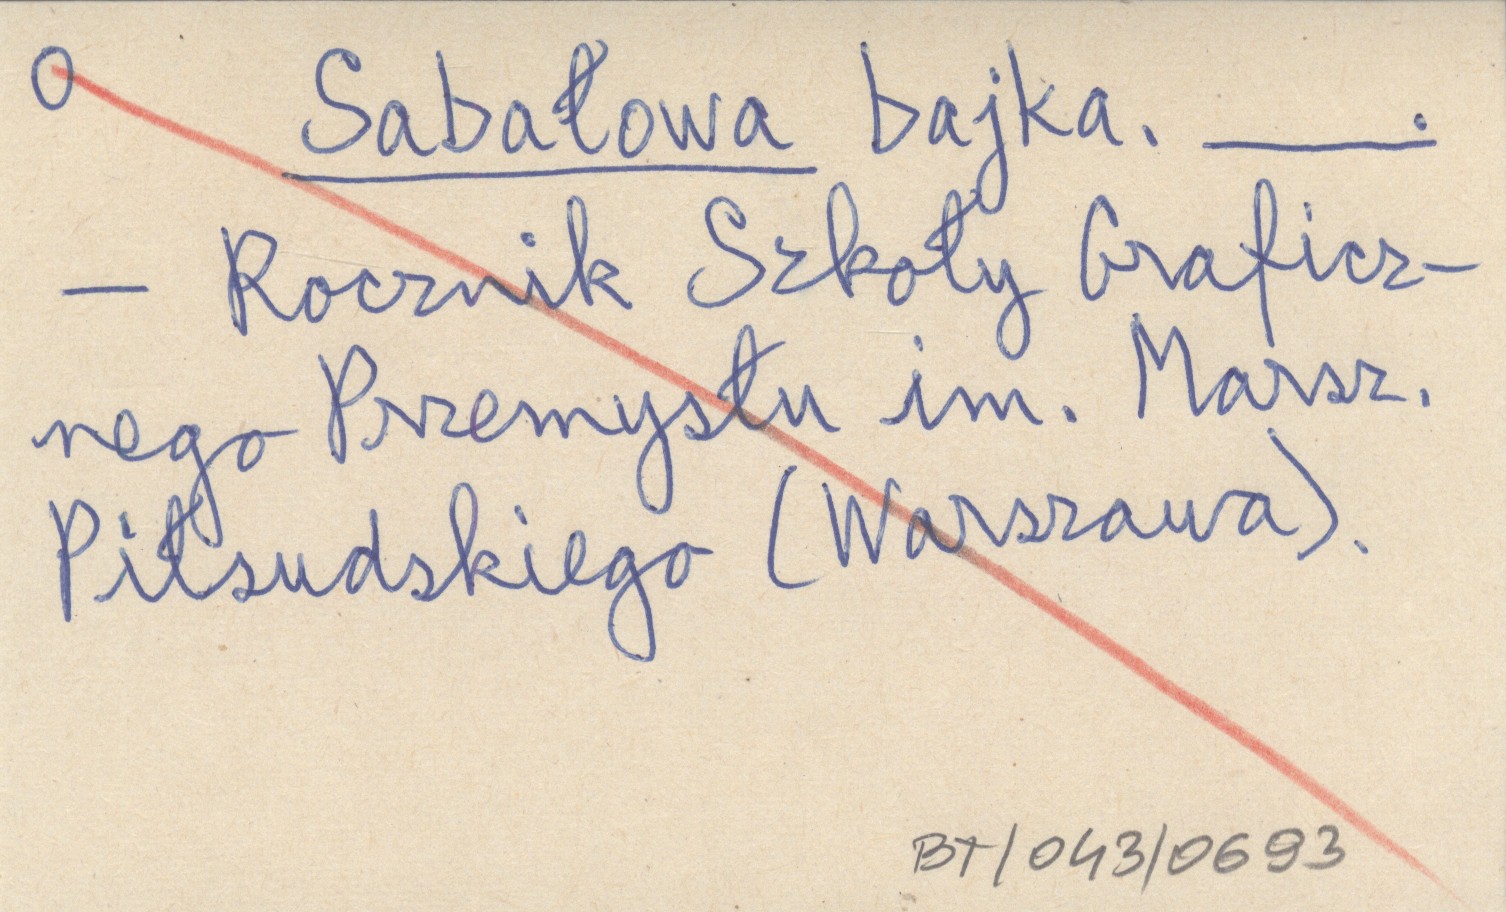 O Sabałowa bajka. ____.
— Rocznik Szkoły Graficz-
nego Przemysłu im. Marsz.
Piłsudskiego (Warszawa).
BT/043/0693